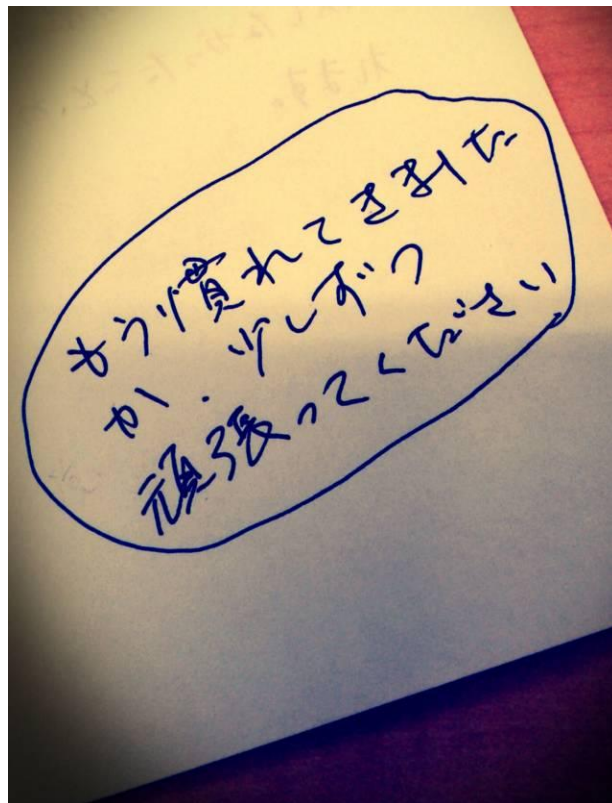 もう慣れてきました
か.少しずつ
頑張ってください